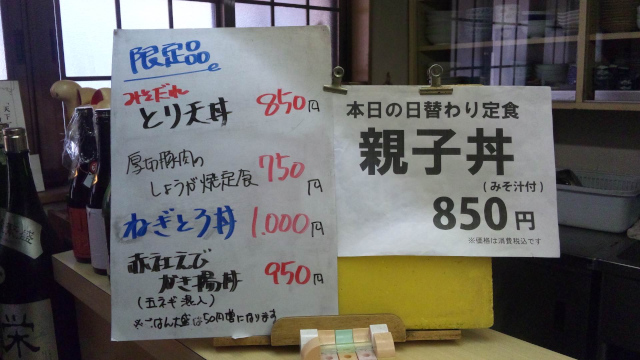 限定品
みそだれ
とり天丼 850円
厚切豚肉の
しょうが焼定食 750円
ねぎとろ丼 1.000円
赤社えび
かき揚丼 950円
(玉ネギ混入)
※ごはん大盛は50円増になります
本日の日替わり定食
親子丼
(みそ汁付)
850円
※価格は消費税込です
栄